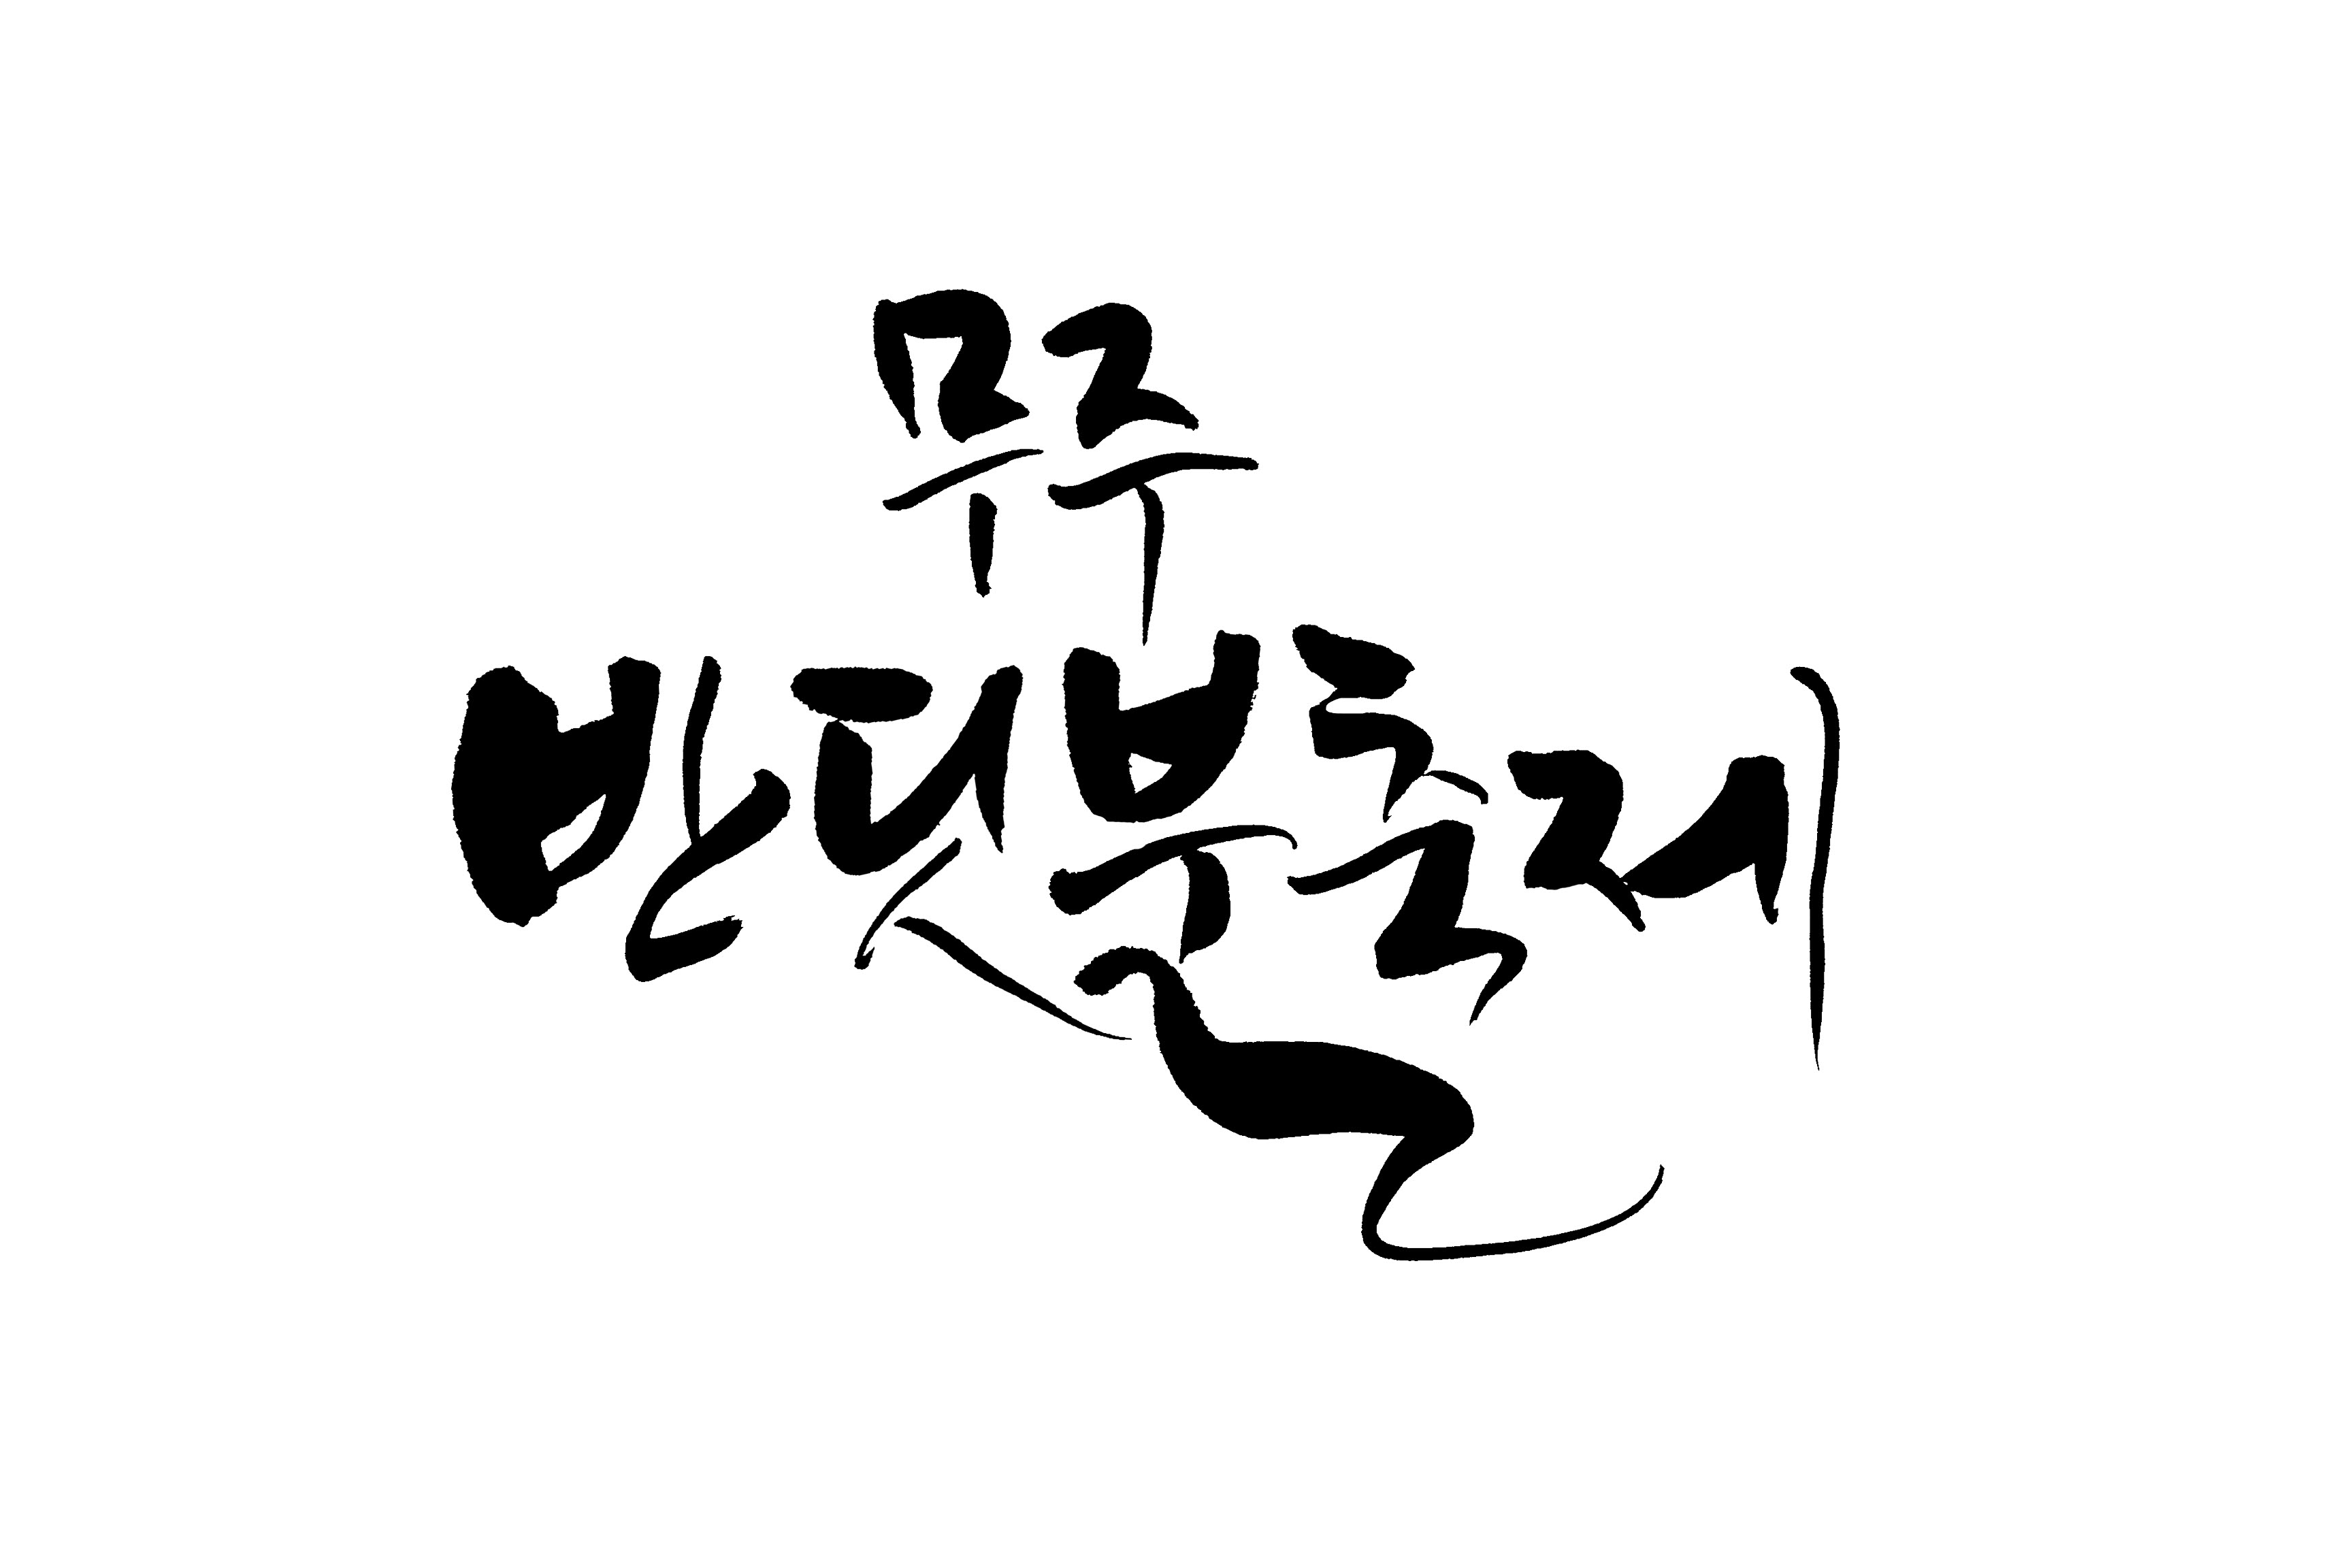 무주
반딧불축제